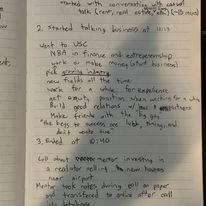 started with conversating with casual
talk (rent, real estate, etc) (~15 mins)
2. Started talking business at 10:19
Went to USC
MBA in finance and entrepreneurship
work or make money (start business)
pick growing industry
new fields all the time
work for a while for experience
get equity position when working for a while
Build good relations w/
Make friends with the big guy
"the keys to success are luck, timing, and
don't waste time"
3. Ended at 10:40
Call about mentor investing in
a realtor selling new homes
near airport
Mentor took notes during call on paper
and transferred to advice after call
into database